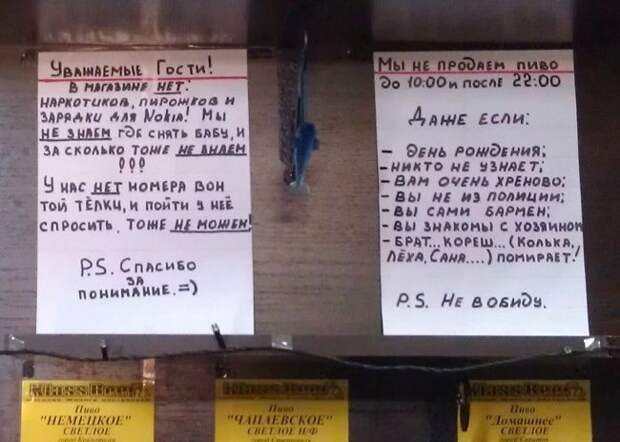 Уважаемые Гости!
В магазине нет:
наркотиков, пирожков и
зарядки для Nokia! Мы
не знаем где снять бабу, и
за сколько тоже не знаем
!!!
У нас нет номера вон
той тёлки, и пойти у неё
спросить тоже не можем!
P.S. Спасибо
за
понимание. =)
Мы не продаем пиво
до 10:00 и после 22:00
Даже если:
- День рождения;
- никто не узнает;
- вам очень хреново;
- вы не из полиции;
- вы сами бармен;
- вы знакомы с хозяином
- брат... кореш... (Колька,
Лёха, Саня....) помирает!
P.S. Не в обиду.
Пиво
"НЕМЕЦКОЕ"
СВЕТЛОЕ
Пиво
"ЧАПАЕВСКОЕ"
СВЕТЛОЕ Н/Ф
Пиво
"Домашнее"
СВЕТЛОЕ